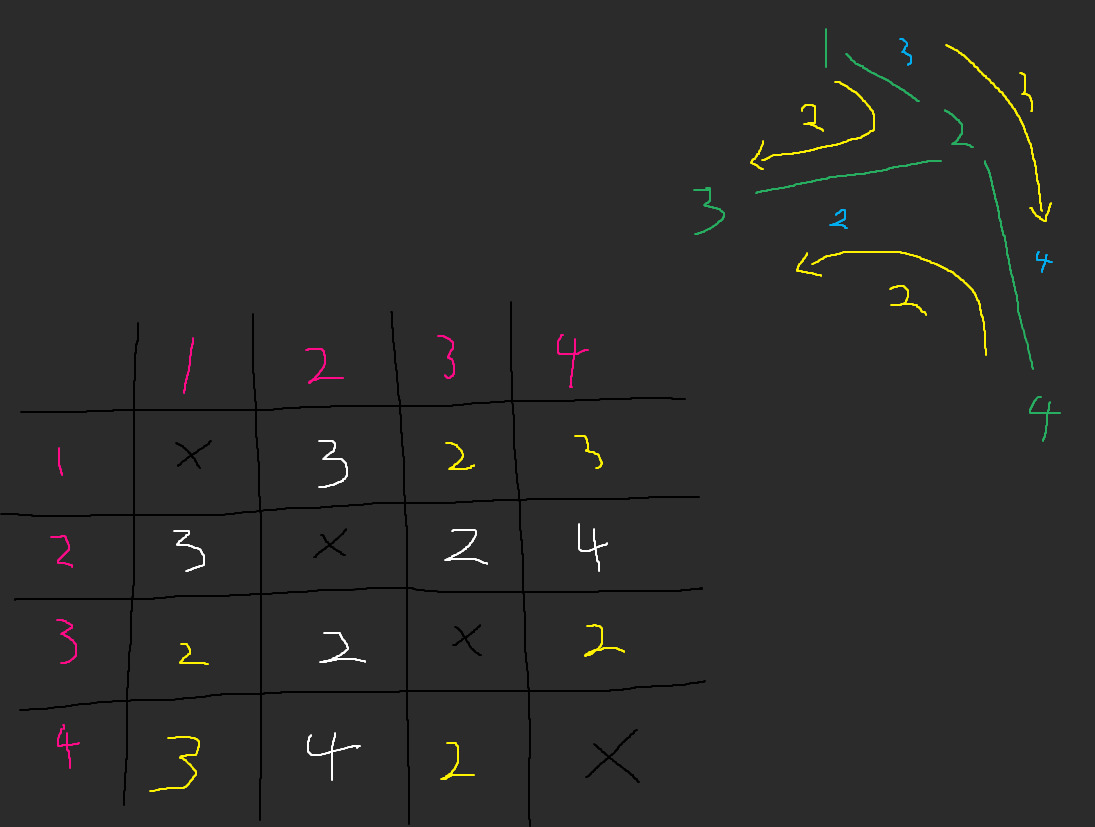 1 3 3
2 2
3 2 4
2
4
1 2 3 4
1 × 3 2 3
2 3 × 2 4
3 2 2 × 2
4 3 4 2 ×